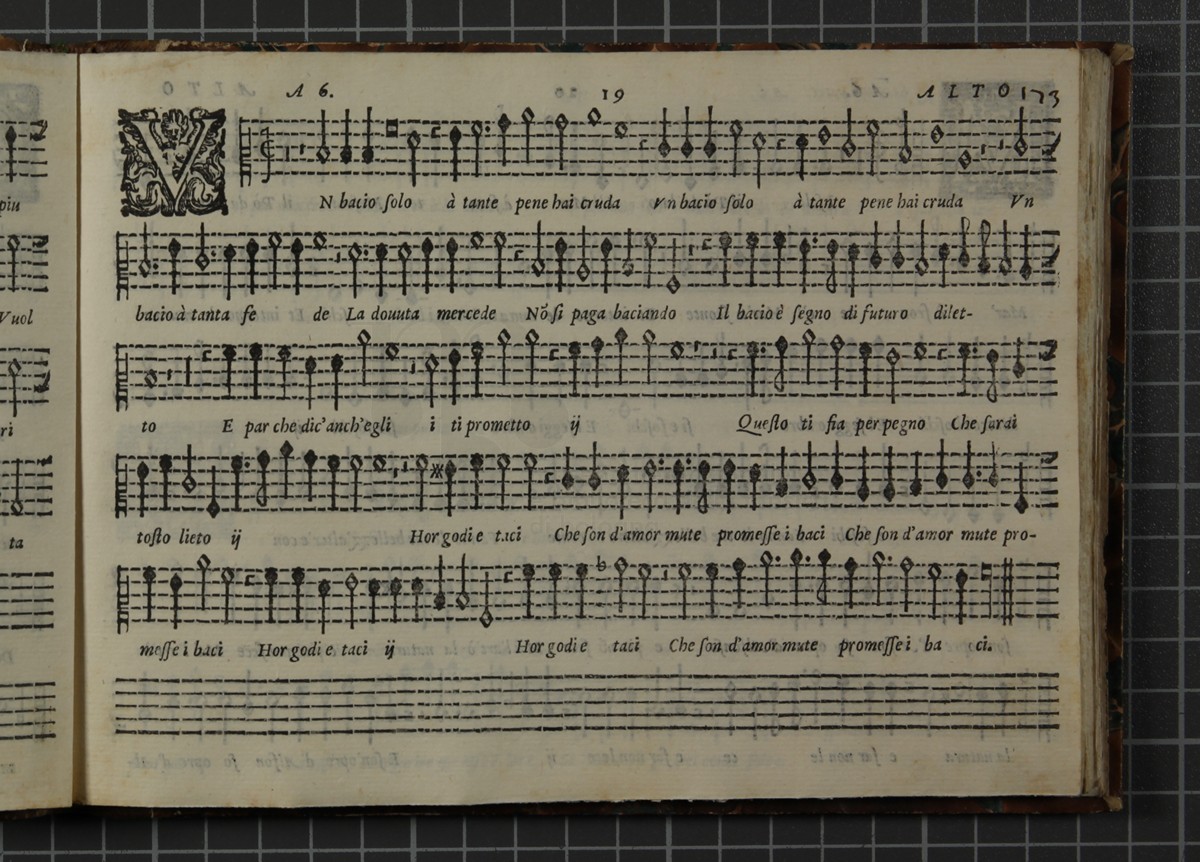 A 6. 19 ALTO 173
VN bacio solo à tante pene hai cruda Vn bacio solo à tante pene hai cruda Vn
piu
bacio à tanta fe de La douuta mercede Nõ si paga baciando Il bacio è segno di futuro dilet-
Vuol
to E par che dic'anch'egli i ti prometto ij Questo ti fia per pegno Che sarai
ri
tosto lieto ij Hor godi e taci Che son d'amor mute promesse i baci Che son d'amor mute pro-
ta
messe i baci Hor godi e taci ij Hor godi e taci Che son d'amor mute promesse i ba ci.